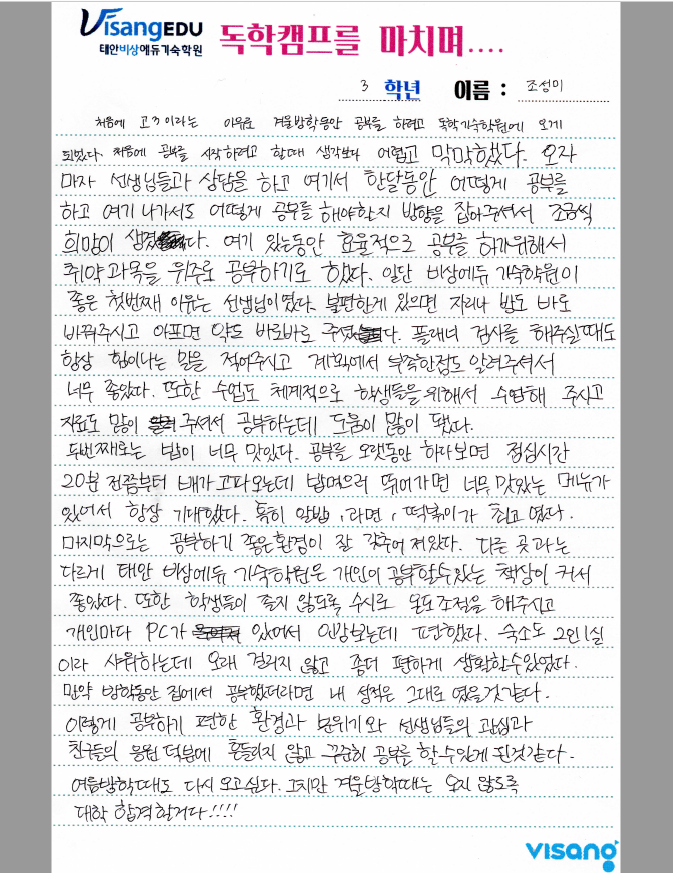 VisangEDU
태안비상에듀기숙학원
독학캠프를 마치며....
3 학년 이름 : 조성미
처음에 고3이라는 이유로 겨울방학동안 공부를 하려고 독학기숙학원에 오게
되었다. 처음에 공부를 시작하려고 할때 생각보다 어렵고 막막했다. 오자
마자 선생님들과 상담을 하고 여기서 한달동안 어떻게 공부를
하고 여기 나가서도 어떻게 공부를 해야할지 방향을 잡아주셔서 조금씩
희망이 생겼다. 여기 있는동안 효율적으로 공부를 하기위해서
취약과목을 위주로 공부하기로 했다. 일단 비상에듀 기숙학원이
좋은 첫번째 이유는 선생님이였다. 불편한게 있으면 자리나 방도 바로
바꿔주시고 아프면 약도 바로바로 주셨다. 플래너 검사를 해주실때도
항상 힘이나는 말을 적어주시고 계획에서 부족한점도 알려주셔서
너무 좋았다. 또한 수업도 체계적으로 학생들을 위해서 수업해 주시고
자료도 많이 주셔서 공부하는데 도움이 많이 됐다.
두번째로는 밥이 너무 맛있다. 공부를 오랫동안 하다보면 점심시간
20분 전쯤부터 배가 고파오는데 밥먹으러 뛰어가면 너무 맛있는 메뉴가
있어서 항상 기대했다. 특히 알밥, 라면, 떡볶이가 최고였다.
마지막으로는 공부하기 좋은환경이 잘 갖추어져있다. 다른 곳과는
다르게 태안 비상에듀 기숙학원은 개인이 공부할수있는 책상이 커서
좋았다. 또한 학생들이 졸지 않도록 수시로 온도조절을 해주시고
개인마다 PC가 있어서 인강보는데 편했다. 숙소도 2인1실
이라 샤워하는데 오래 걸리지 않고 좀더 편하게 생활할수있었다.
만약 방학동안 집에서 공부했더라면 내 성적은 그대로 였을것같다.
이렇게 공부하기 편한 환경과 분위기와 선생님들의 관심과
친구들의 응원 덕분에 흔들리지 않고 꾸준히 공부를 할수있게 된것같다.
여름방학때도 다시 오고싶다. 그치만 겨울방학때는 오지 않도록
대학 합격할거다!!!!
visang